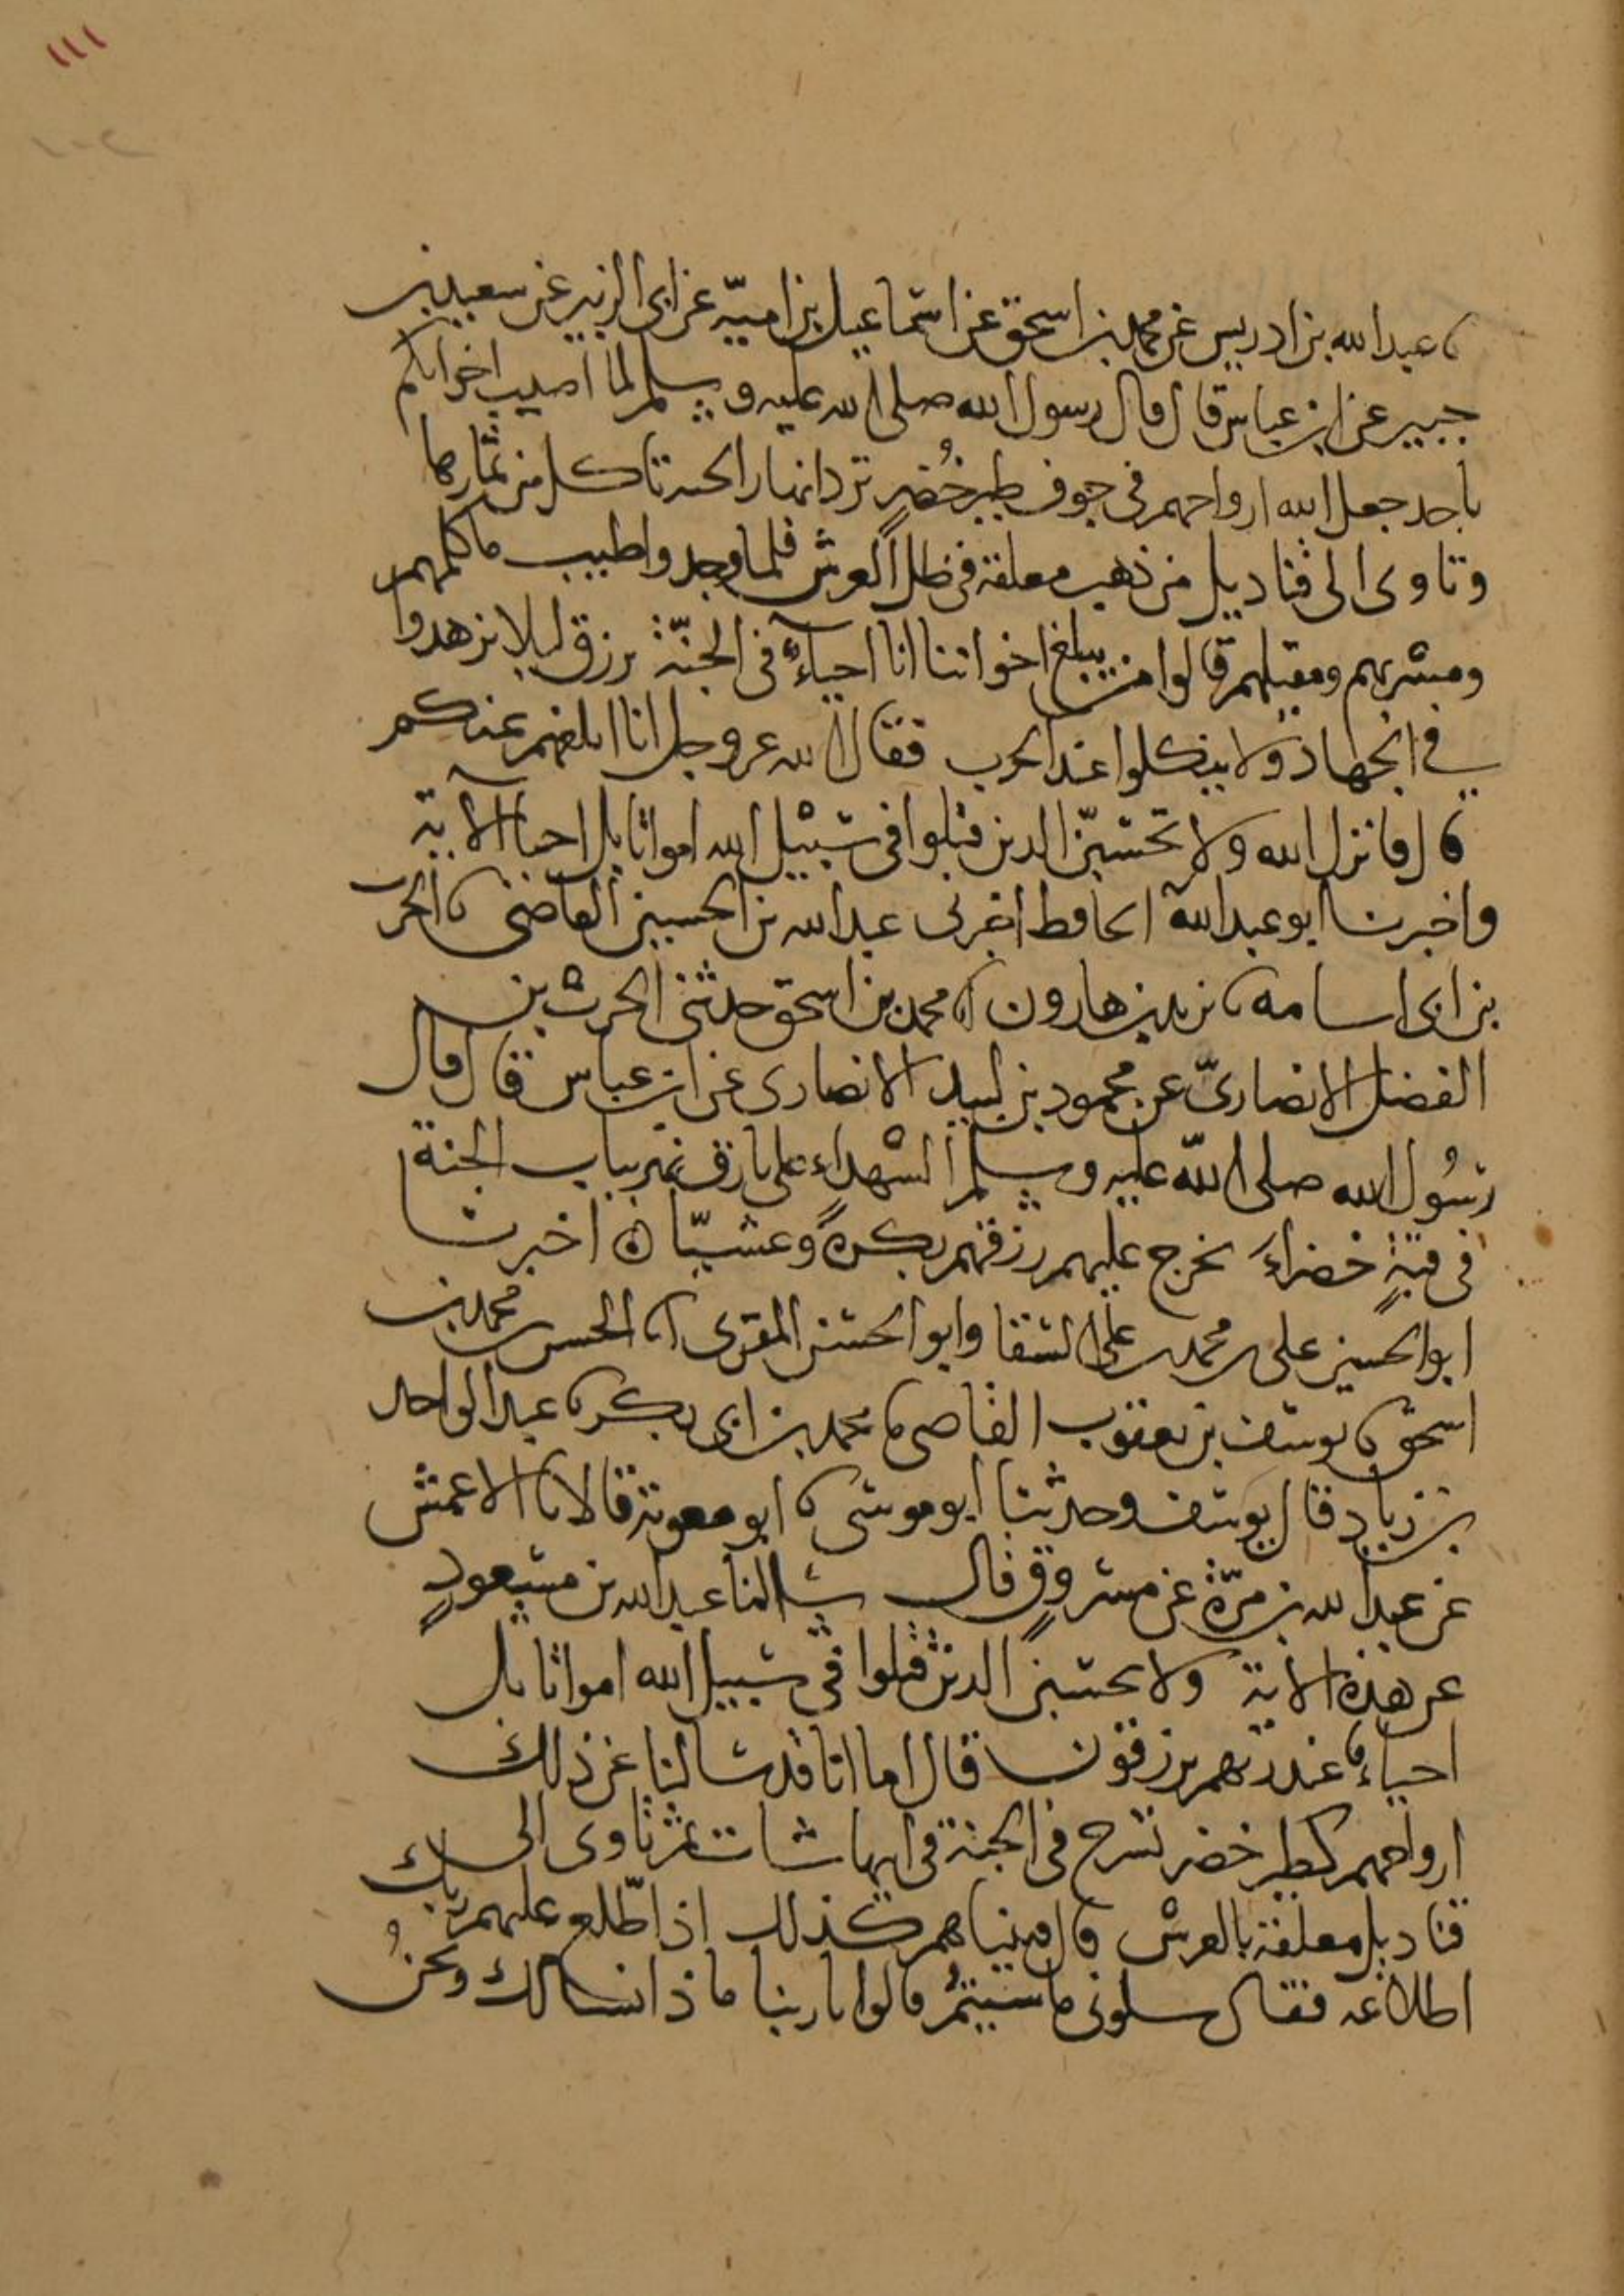 ١١١
نا عبدالله بن ادريس عن محمد بن اسحق عن اسماعيل بن اميّة عن ابى الزبير عن سعيد بن
جبير عن ابن عباس قال قال رسول الله صلى الله عليه وسلم لما اصيب اخوانكم
باحد جعل الله ارواحهم فى جوف طير خُضرٍ ترد انهار الجنة تاكل من ثمارها
وتاوى الى قناديل من ذهب معلقة فى ظل العرش فلما وجدوا طيب ماكلهم
ومشربهم ومقيلهم قالوا من يبلغ اخواننا انا احياءٌ فى الجنّة نرزق ليلا يزهدوا
في الجهاد ولا ينكلوا عند الحرب فقال الله عز وجل انا ابلغهم عنكم
قال فانزل الله ولا تحسبنّ الذين قتلوا فى سبيل الله امواتا بل احيا الآية
واخبرنا ابو عبدالله الحافظ اخبرنى عبدالله بن الحسين القاضى نا الحرث
بن ابى اسامه نا يزيد بن هارون انا محمد بن اسحق حدثنى الحرث بن
الفضل الانصارىّ عن محمود بن لبيد الانصارى عن ابن عباس قال قال
رسُول الله صلى اللّه عليه وسلم الشهداء على بارق نهر بباب الجنة
فى قبةٍ خضراءَ يخرج عليهم رزقهم بكرةً وعشيّا ۞ اخبرنا
ابو الحسين على بن محمد بن على السقا وابو الحسن المقرى انا الحسن بن محمد بن
اسحق نا يوسف بن يعقوب القاضى نا محمد بن ابى بكر نا عبد الواحد
بن زياد قال يوسف وحدثنا ابو موسى نا ابو معوية قالا نا الاعمش
عن عبدالله بن مرّة عن مسروقٍ قال سالنا عبدالله بن مسعودٍ
عن هذه الاية ولا تحسبن الذين قتلوا فى سبيل الله امواتا بل
احياءٌ عند ربهم يرزقون قال اما انا قد سالنا عن ذلك
ارواحهم كطير خضر تسرح فى الجنة فى ايها شات ثم تاوى الى
قناديل معلقة بالعرش قال فبيناهم كذلك اذ اطّلع عليهم ربك
اطلاعه فقال سلونى ما شيتمُ قالوا يا ربنا ماذا نسالك ونحنُ